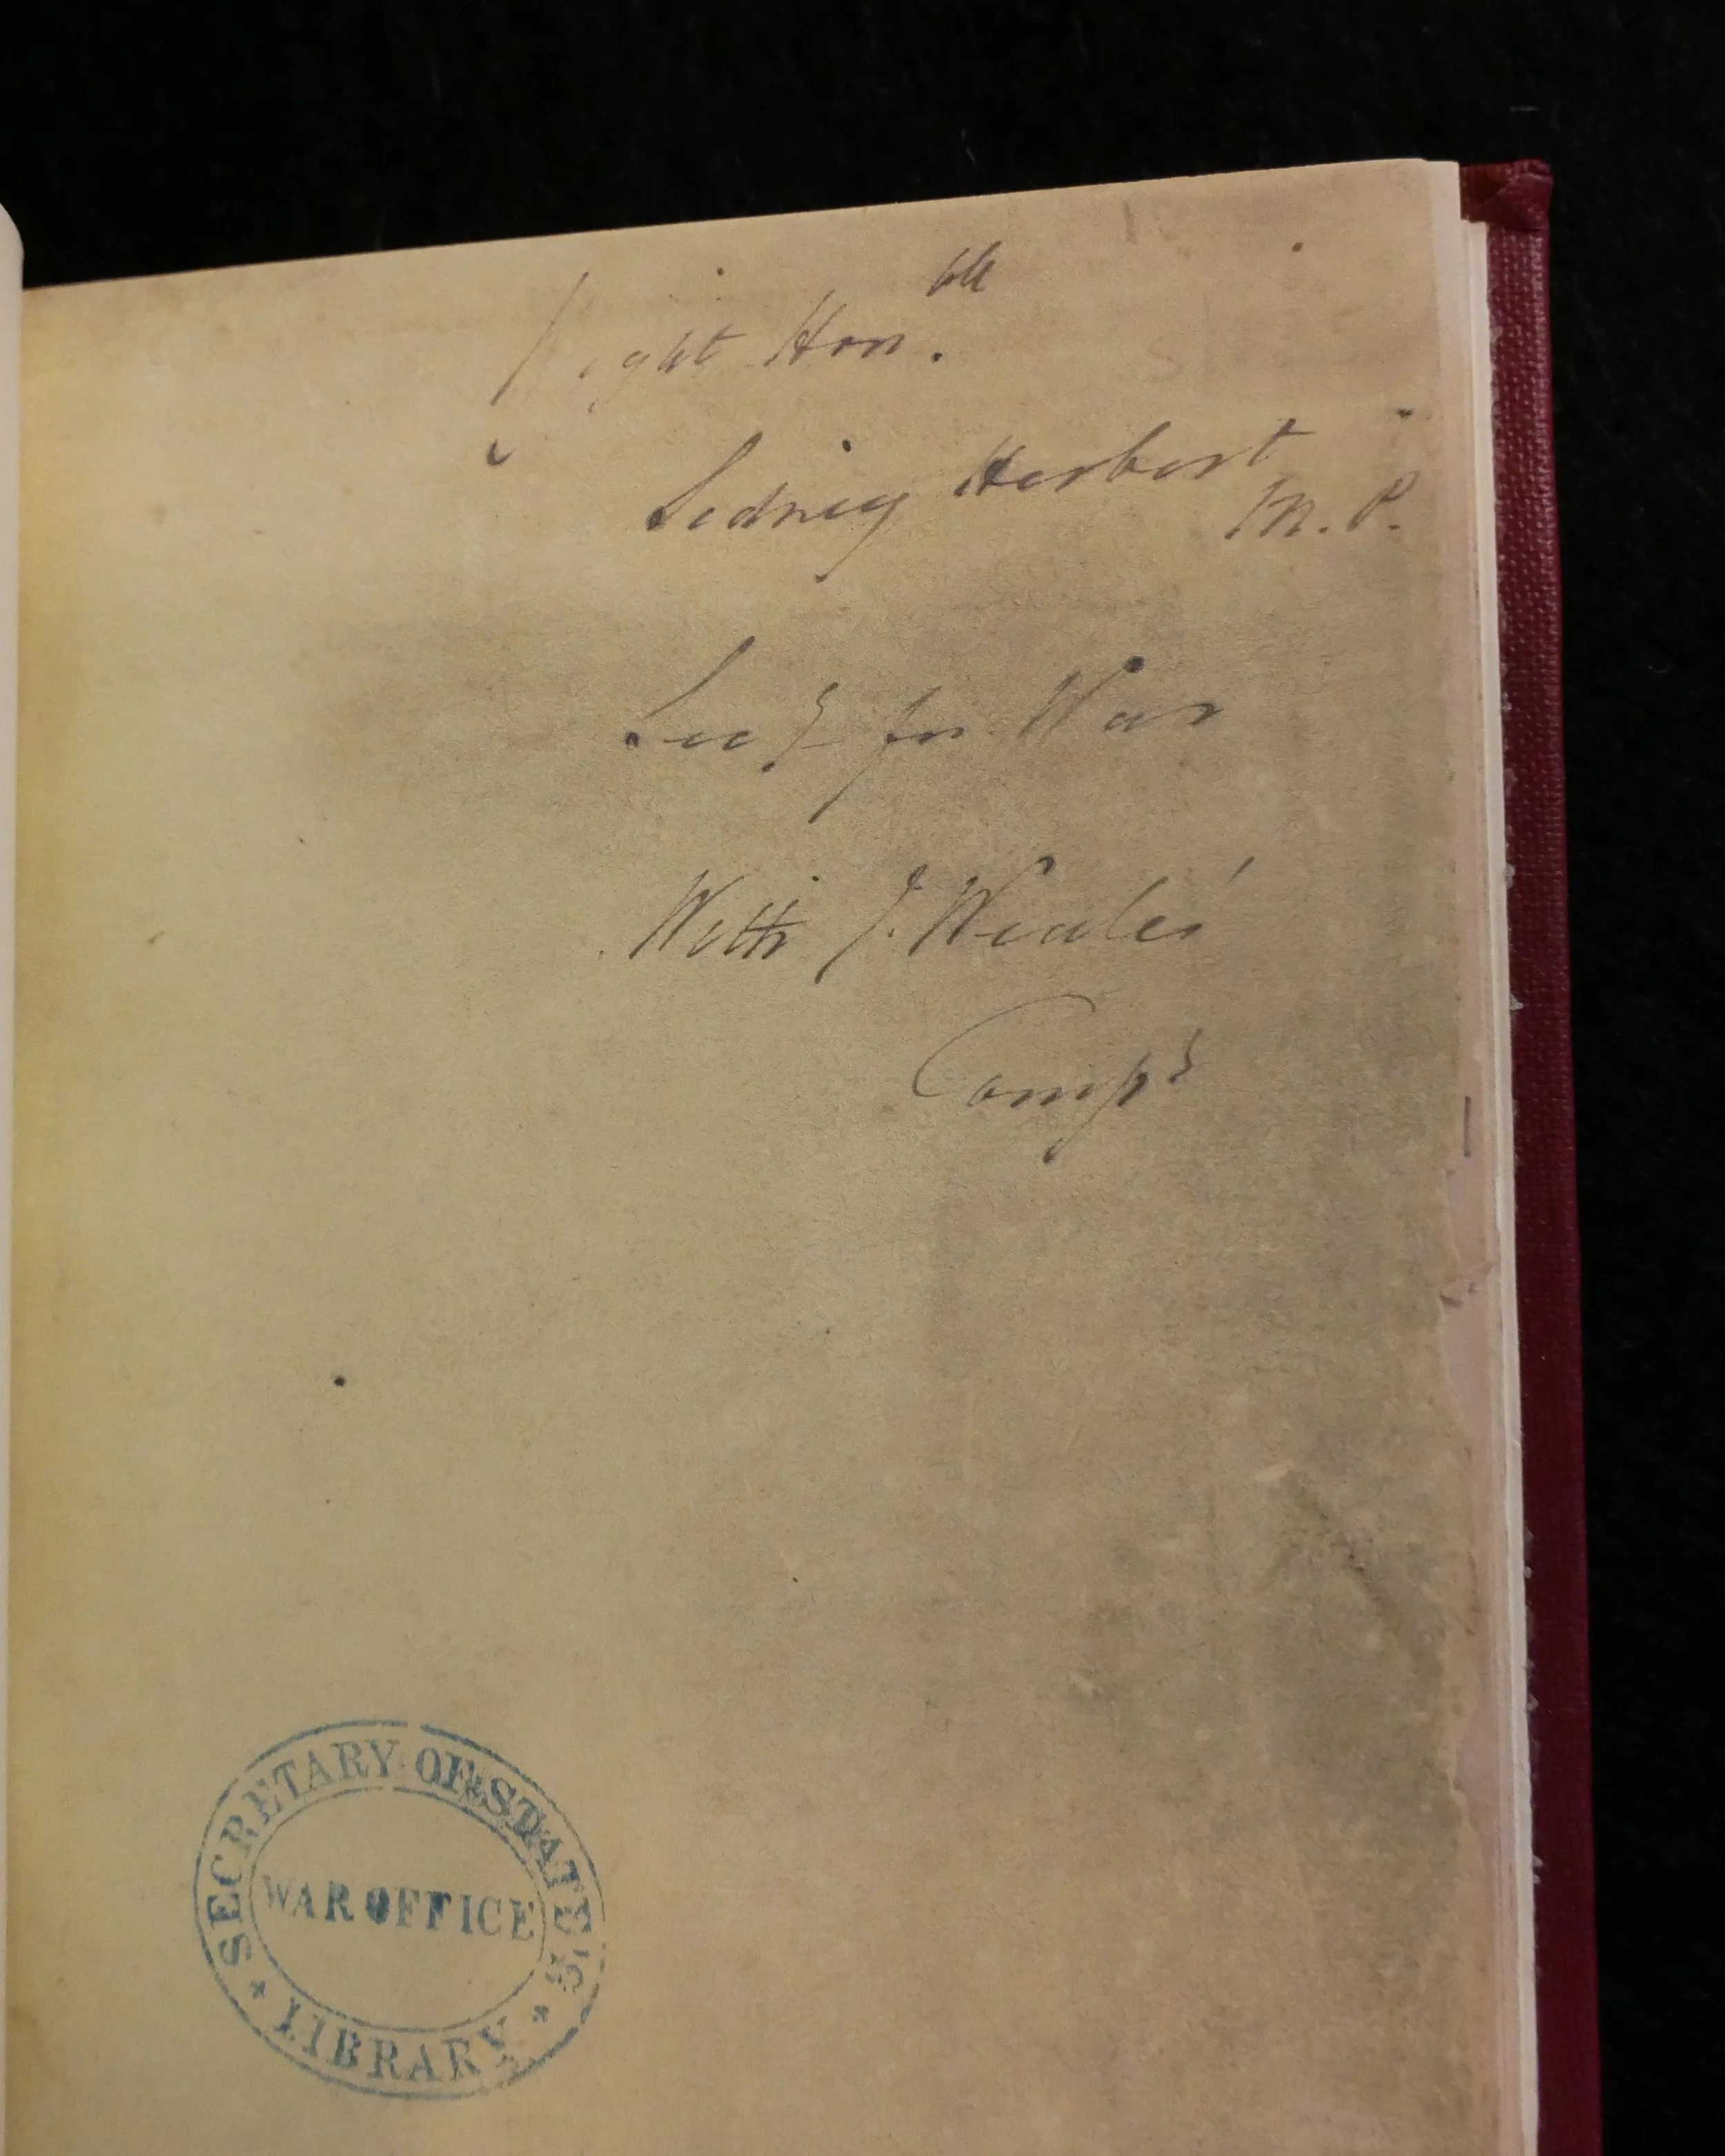 Right Hon.ble
Sidney Herbert
M.P.
Secy for War
With J. Weale's
Comps
SECRETARY OF STATE'S
WAR OFFICE
LIBRARY